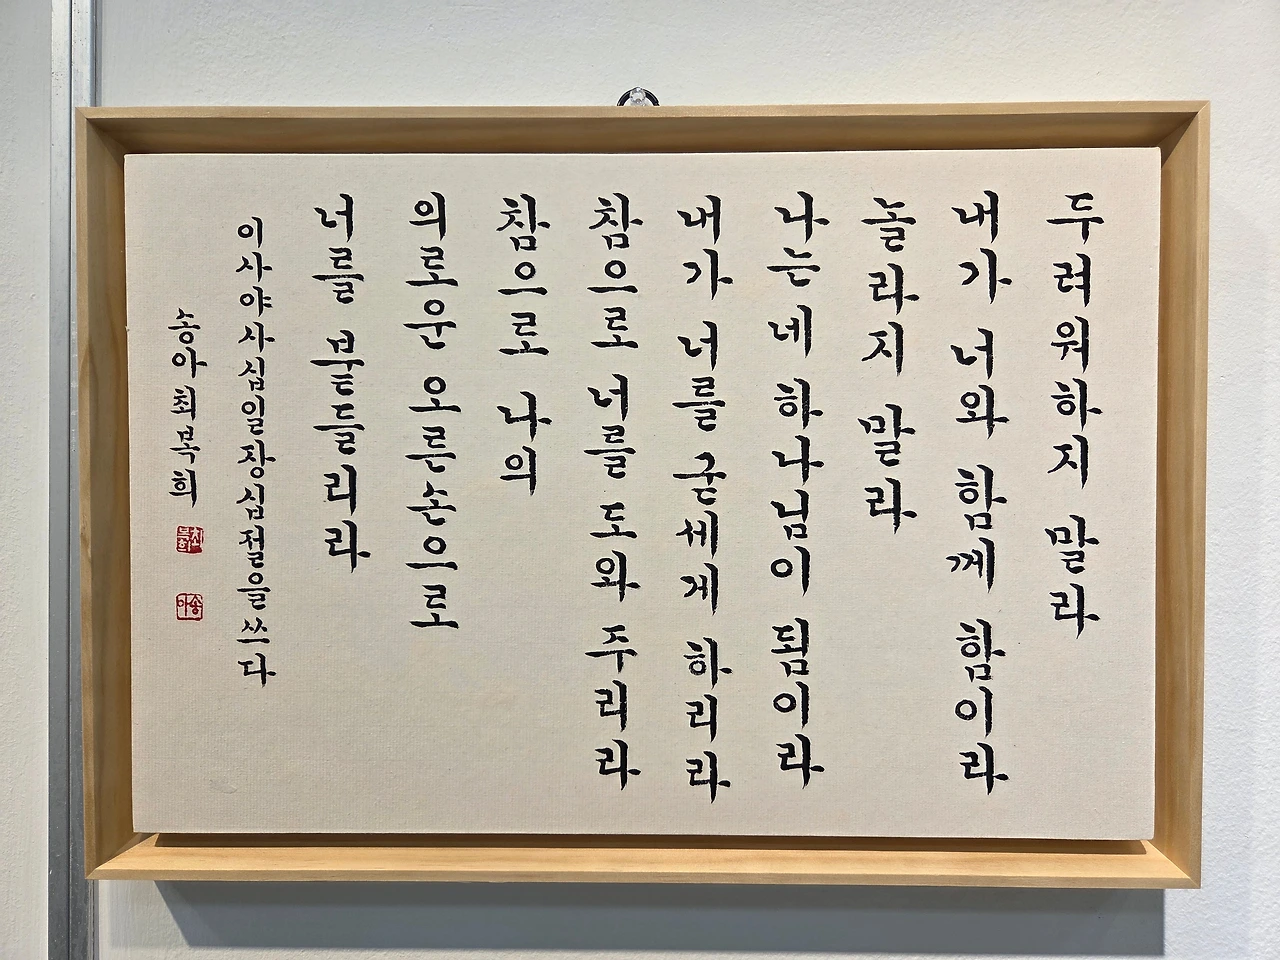 두려워하지 말라
내가 너와 함께 함이라
놀라지 말라
나는 네 하나님이 됨이라
내가 너를 굳세게 하리라
참으로 너를 도와 주리라
참으로 나의
의로운 오른손으로
너를 붙들리라
이사야사십일장십절을 쓰다
송아 최복희
송아